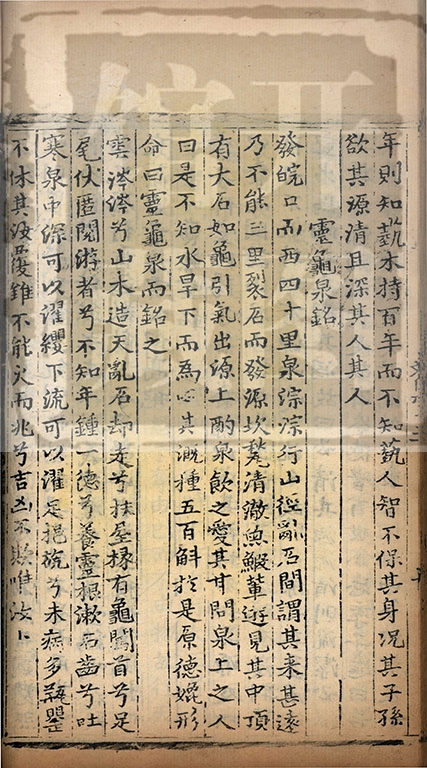 年則知蓺木持百年而不知蓺人智不保其身况其子孫
欲其源清且深其人其人
靈龜泉銘
發皖口而西四十里泉淙淙行山徑亂石間謂其来甚逺
乃不能三里裂石而發源坎甃清澈魚鰕軰逰見其中頂
有大石如龜引氣出源上酌泉飲之愛其甘問泉上之人
曰是不知水旱下而為田其溉種五百斛扵是原德媲形
命曰靈龜泉而銘之
雲涔涔兮山木造天亂石却走兮扶屋椽有龜闖首兮足
尾伏匿閱游者兮不知年鍾一德兮養靈根漱石齒兮吐
寒泉中深可以濯纓下流可以濯足挹㧞兮未病多瓶罌
不休其汝覆雖不能火而兆兮吉凶不欺唯汝卜